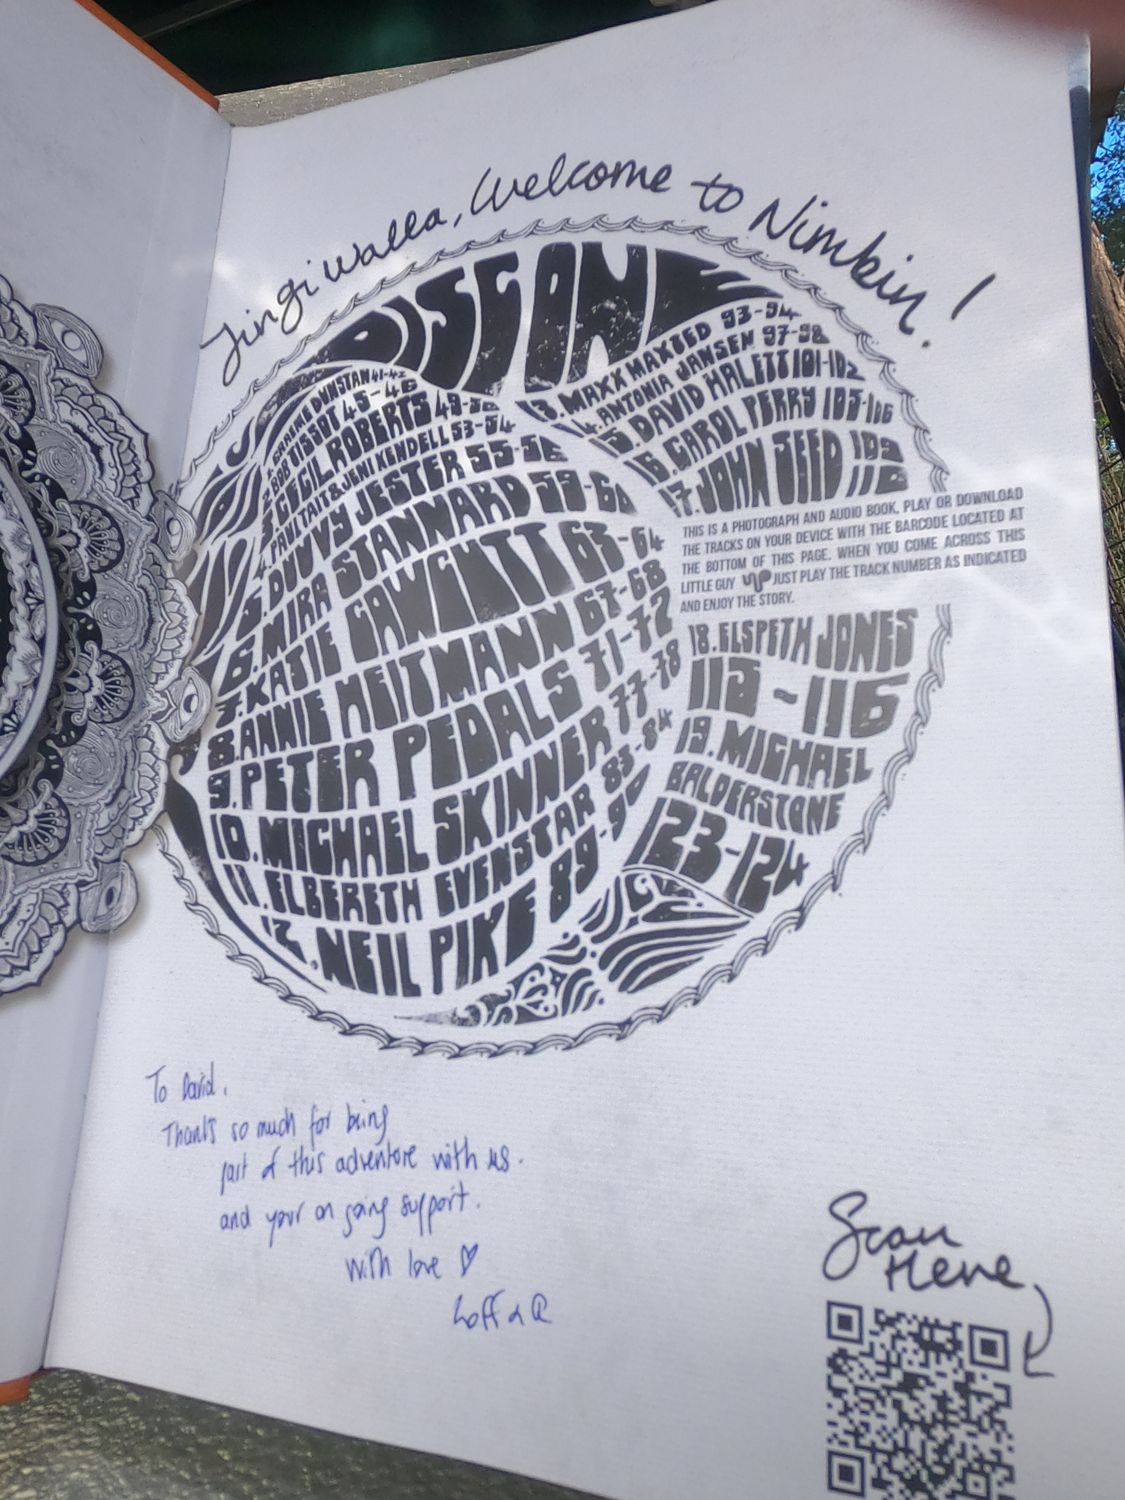 Jingi walla, Welcome to Nimbin!
DISC ONE
1. GRAEME DUNSTAN 41-42
2. BOB TISSOT 45-46
3. CECIL ROBERTS 49-50
4. PAUL TAIT & JENI KENDELL 53-54
5. DUVVY JESTER 55-56
6. MIRA STANNARD 59-60
7. KATIE CAWCUTT 63-64
8. ANNIE HEITMANN 67-68
9. PETER PEDALS 71-72
10. MICHAEL SKINNER 77-78
11. ELBERETH EVENSTAR 83-84
12. NEIL PIKE 89-90
13. MAXX MAXTED 93-94
14. ANTONIA JANSEN 97-98
15. DAVID HALETT 101-102
16. CAROL PERRY 105-106
17. JOHN SEED 109
110
THIS IS A PHOTOGRAPH AND AUDIO BOOK, PLAY OR DOWNLOAD
THE TRACKS ON YOUR DEVICE WITH THE BARCODE LOCATED AT
THE BOTTOM OF THIS PAGE. WHEN YOU COME ACROSS THIS
LITTLE GUY JUST PLAY THE TRACK NUMBER AS INDICATED
AND ENJOY THE STORY.
18. ELSPETH JONES
115-116
19. MICHAEL
BALDERSTONE
123-124
To David.
Thanks so much for being
part of this adventure with us.
and your on going support.
With love
Scan
Here